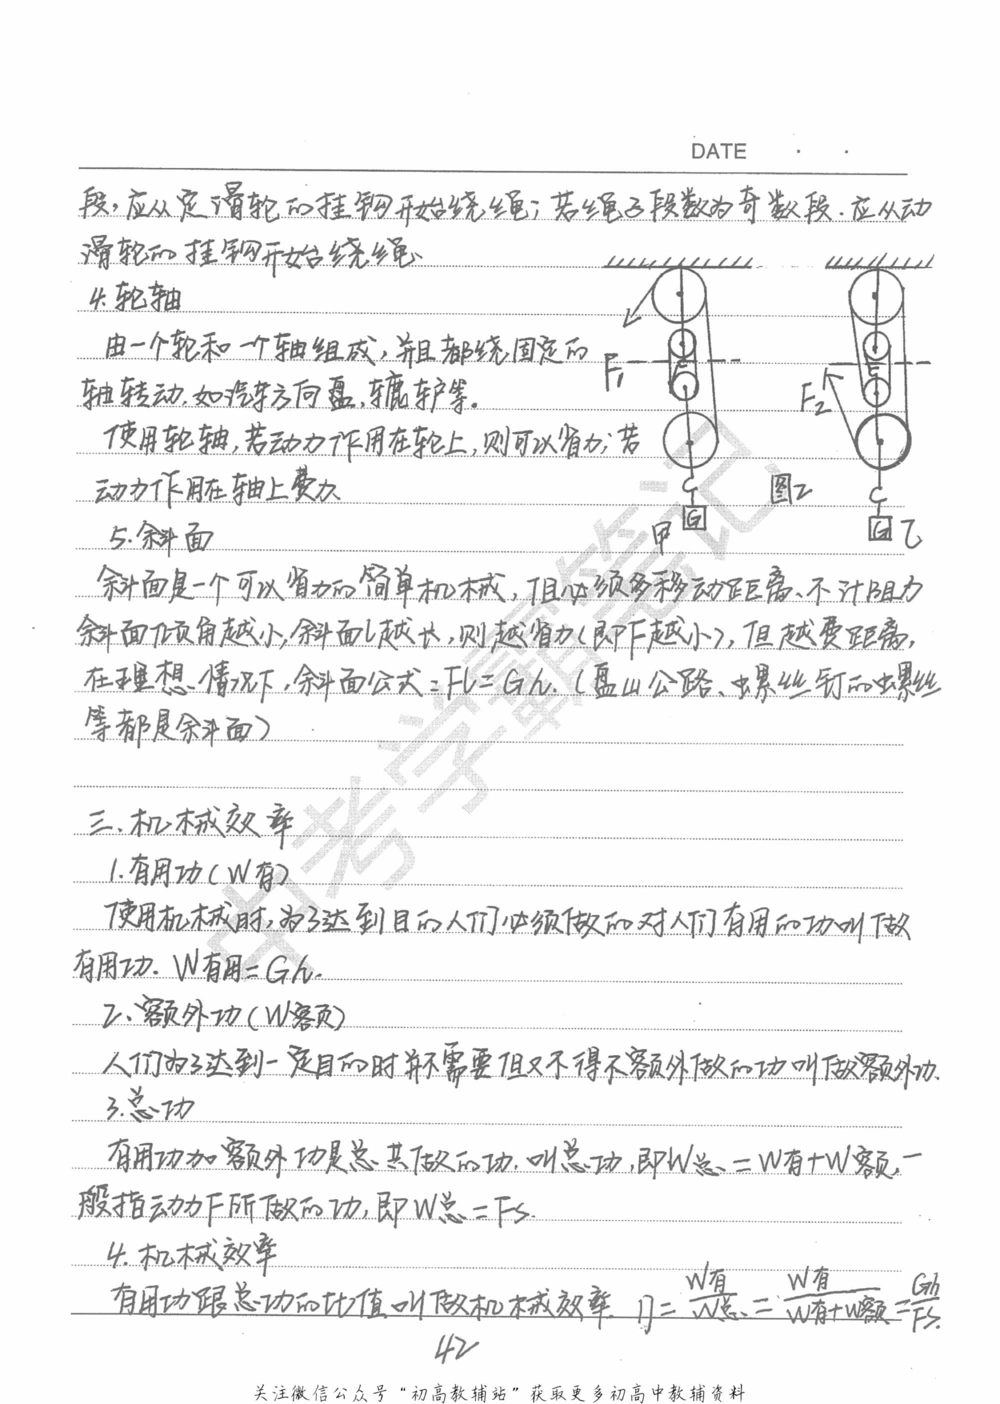 DATE · ·
段,应从定滑轮的挂钩开始绕绳;若绳子段数为奇数段.应从动
滑轮的挂钩开始绕绳.
4.轮轴
由一个轮和一个轴组成,并且都绕固定的
轴转动.如汽车方向盘,辘轳等。
使用轮轴,若动力作用在轮上,则可以省力;若
动力作用在轴上费力.
5.斜面
斜面是一个可以省力的简单机械,但必须多移动距离、不计阻力
斜面倾角越小,斜面l越长,则越省力(即F越小),但越费距离,
在理想情况下,斜面公式:Fl=Gh.(盘山公路、螺丝钉的螺丝
等都是斜面)
F1
甲
G
图2
F2
G
乙
三.机械效率
1.有用功(W有)
使用机械时,为了达到目的人们必须做的对人们有用的功叫做
有用功. W有用=Gh.
2、额外功(W额)
人们为了达到一定目的时并不需要但又不得不额外做的功叫做额外功.
3.总功
有用功加额外功是总共做的功.叫总功,即W总=W有+W额,一
般指动力F所做的功,即W总=Fs.
4.机械效率
有用功跟总功的比值叫做机械效率 η=W有/W总=W有/(W有+W额)=Gh/Fs.
42
关注微信公众号“初高教辅站”获取更多初高中教辅资料
中考学霸笔记